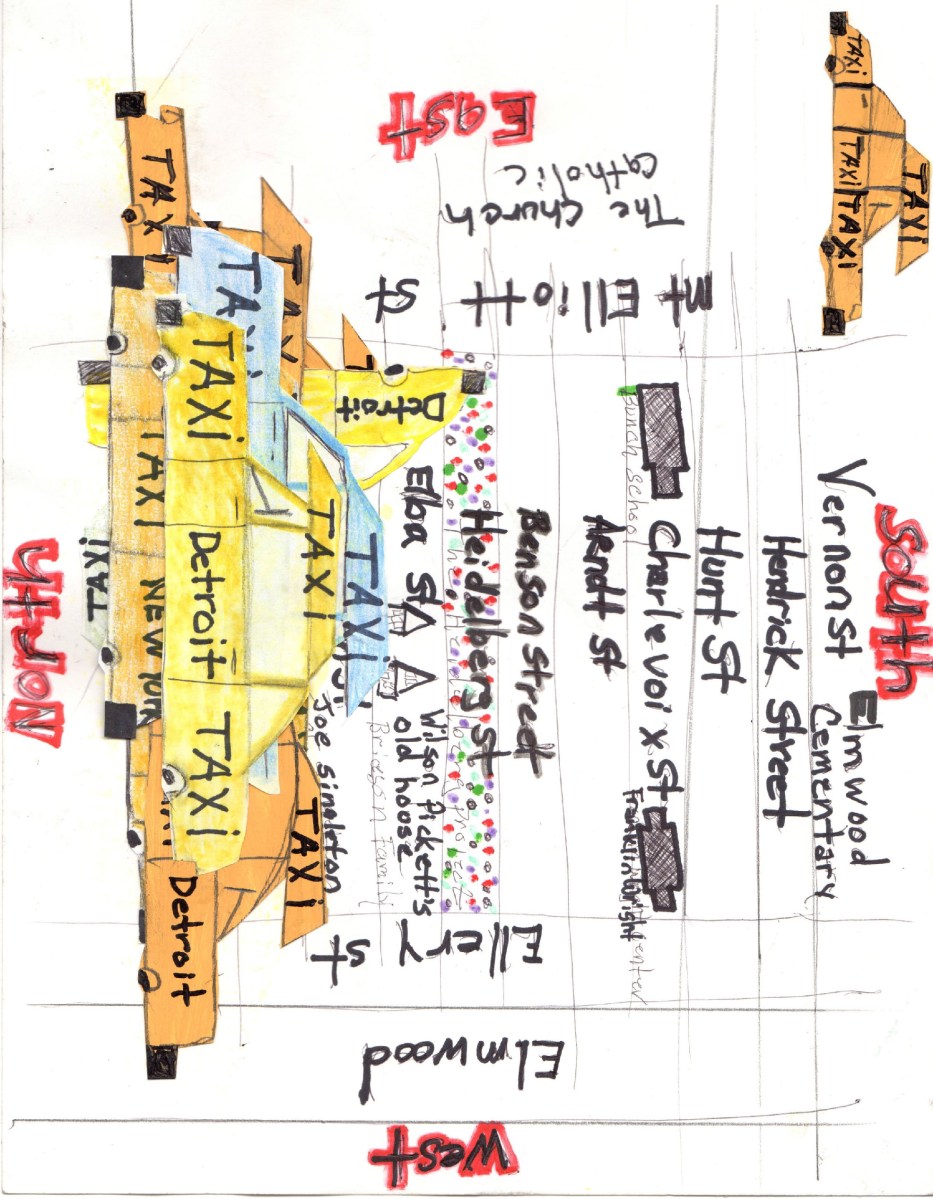 East
The Church
Catholic
Mt Elliott
St
TAXI
TAXI
TAXI
TAXI
TAXI
TAXI
TAXI
TAXI
Detroit
TAXI
Detroit
TAXI
TAXI
TAXI
TAXI
NEW YORK
TAXI
North
South
Vernon St
Elmwood
Cementary
Hendrick Street
Hunt St
Charlevoix St
Franklin Wright
Arndt St
Benson Street
Heidelberg St
Elba St
Wilson Pickett's
old hoose
Bridson family
Joe Singleton
TAXI
Detroit
Ellery
St
Elmwood
West